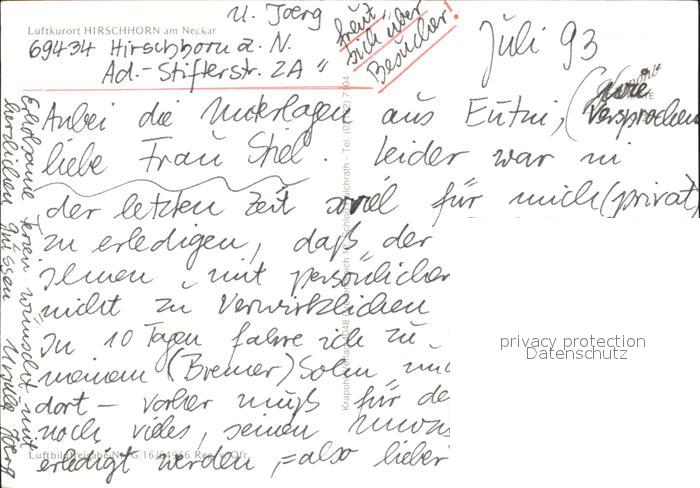 U. Joerg
Luftkurort HIRSCHHORN am Neckar
69434 Hirschhorn a. N.
Ad.-Stifterstr. 2A "
freut
sich über
Besucher!
Juli 93
Anbei die Unterlagen aus Eutin, (wie versprochen
liebe Frau Stiel. Leider war in
der letzten Zeit soviel für mich (privat)
zu erledigen, daß der
Ihnen mit persönlicher
nicht zu verwirklichen
In 10 Tagen fahre ich zu
meinem (Bremer) Sohn und
dort – vorher muß für de
noch vieles, seinen Umzug
erledigt werden, = also lieber
Erholsame Ferien wünscht mit
herzlichen Grüssen Ursula Joerg
Luftbildfreigabe Nr. G 16/
privacy protection
Datenschutz